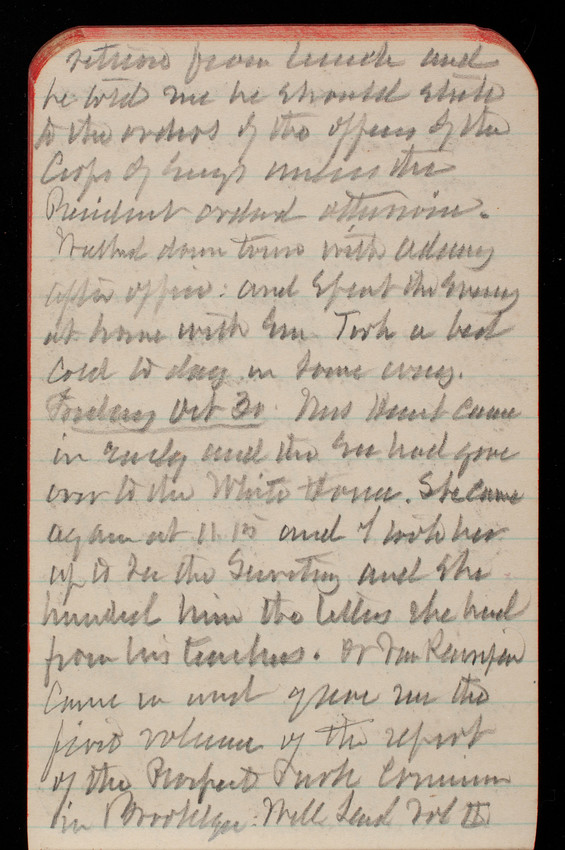 return from lunch and
he told me he should stick
to the orders of the officers of the
Corps of Engrs unless the
President ordered otherwise.
Walked down town with
after office: and spent the evening
at home with Em. Took a bad
cold to day in some way.
Friday Oct 30. Mrs Hunt came
in early and the Sec had gone
over to the White House. She came
again at 11.15 and I took her
up to See the Secretary and she
handed him the letters she had
from his teachers. Dr Van
came in and gave me the
first volume of the report
of the Prospect Park Commission
in Brooklyn. Will Send Vol II